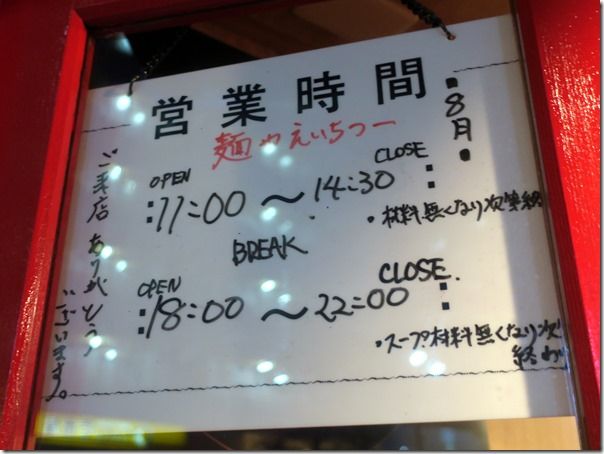 営業時間
8月
麺やえいちつー
OPEN CLOSE
11:00 〜 14:30
・材料無くなり次第終
BREAK
OPEN CLOSE
18:00 〜 22:00
・スープ材料無くなり次
終わり
ご来店ありがとう
ございます。